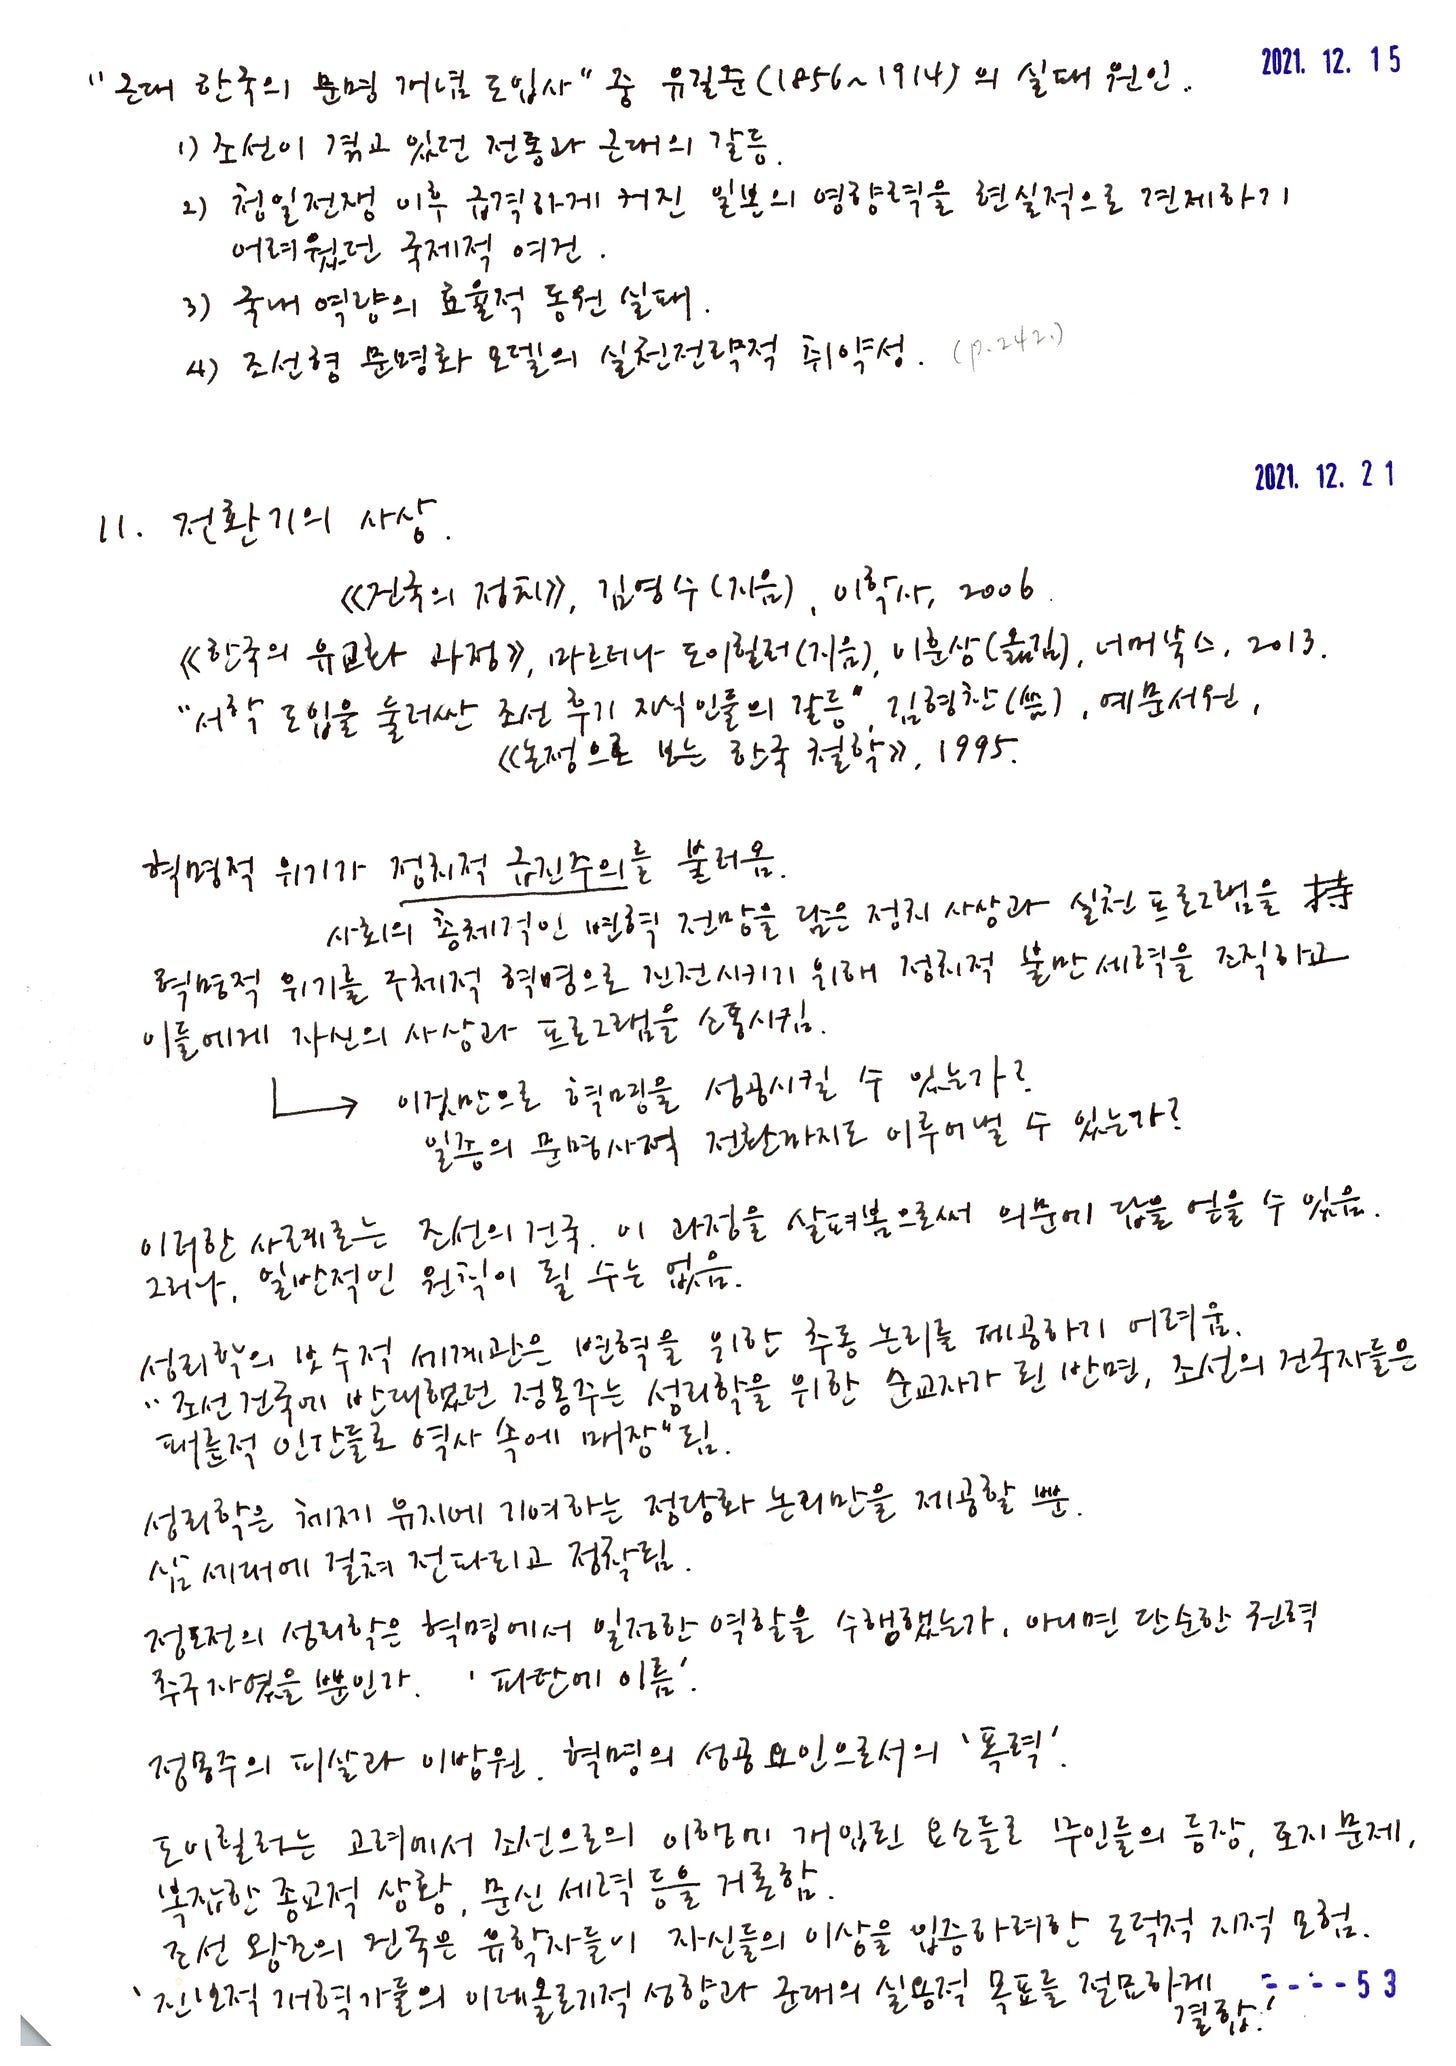 2021. 12. 15
"근대 한국의 문명 개념 도입사" 중 유길준(1856~1914)의 실패 원인.
1) 조선이 겪고 있던 전통과 근대의 갈등.
2) 청일전쟁 이후 급격하게 커진 일본의 영향력을 현실적으로 견제하기
어려웠던 국제적 여건.
3) 국내 역량의 효율적 동원 실패.
4) 조선형 문명화 모델의 실천전략적 취약성. (p.242.)
2021. 12. 21
11. 전환기의 사상.
《건국의 정치》, 김영수(지음), 이학사, 2006.
《한국의 유교화 과정》, 마르티나 도이힐러(지음), 이훈상(옮김), 너머북스, 2013.
"서학 도입을 둘러싼 조선 후기 지식인들의 갈등", 김형찬(씀), 예문서원,
《논쟁으로 보는 한국 철학》, 1995.
혁명적 위기가 정치적 급진주의를 불러옴.
사회의 총체적인 변혁 전망을 담은 정치 사상과 실천 프로그램을 持
혁명적 위기를 주체적 혁명으로 진전시키기 위해 정치적 불만세력을 조직하고
이들에게 자신의 사상과 프로그램을 소통시킴.
이것만으로 혁명을 성공시킬 수 있는가?
일종의 문명사적 전환까지도 이루어낼 수 있는가?
이러한 사례로는 조선의 건국. 이 과정을 살펴봄으로써 의문에 답을 얻을 수 있음.
그러나, 일반적인 원칙이 될 수는 없음.
성리학의 보수적 세계관은 변혁을 위한 추동 논리를 제공하기 어려움.
"조선 건국에 반대했던 정몽주는 성리학을 위한 순교자가 된 반면, 조선의 건국자들은
패륜적 인간들로 역사 속에 매장"됨.
성리학은 체제 유지에 기여하는 정당화 논리만을 제공할 뿐.
삼 세대에 걸쳐 전파되고 정착됨.
정도전의 성리학은 혁명에서 일정한 역할을 수행했는가, 아니면 단순한 권력
추구자였을 뿐인가. '파탄에 이름'.
정몽주의 피살과 이방원. 혁명의 성공요인으로서의 '폭력'.
도이힐러는 고려에서 조선으로의 이행에 개입된 요소들로 무인들의 등장, 토지 문제,
복잡한 종교적 상황, 문신 세력 등을 거론함.
조선 왕조의 건국은 유학자들이 자신들의 이상을 입증하려한 도덕적 지적 모험.
'진보적 개혁가들의 이데올로기적 성향과 군대의 실용적 목표를 절묘하게
결합.'
- - - - 5 3